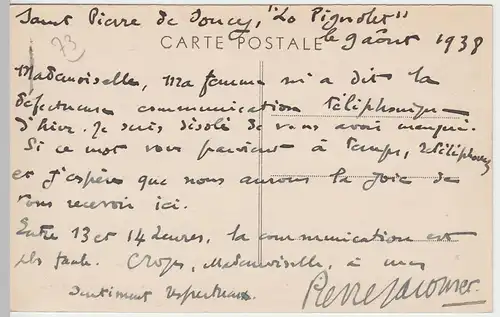 Saint Pierre de Soucy, "Le Pignolet"
73
le 9 août 1938
CARTE POSTALE
Mademoiselle, Ma femme m'a dit la
defectueuse communication téléphonique
d'hier. Je suis désolé de vous avoir manqué.
Si ce mot vous parvient à temps, retéléphonez
et j'espère que nous aurons la joie de
vous recevoir ici.
Entre 13 et 14 heures, la communication est
plus facile. Croyez, Mademoiselle, à mes
sentiments respectueux.
Pierre